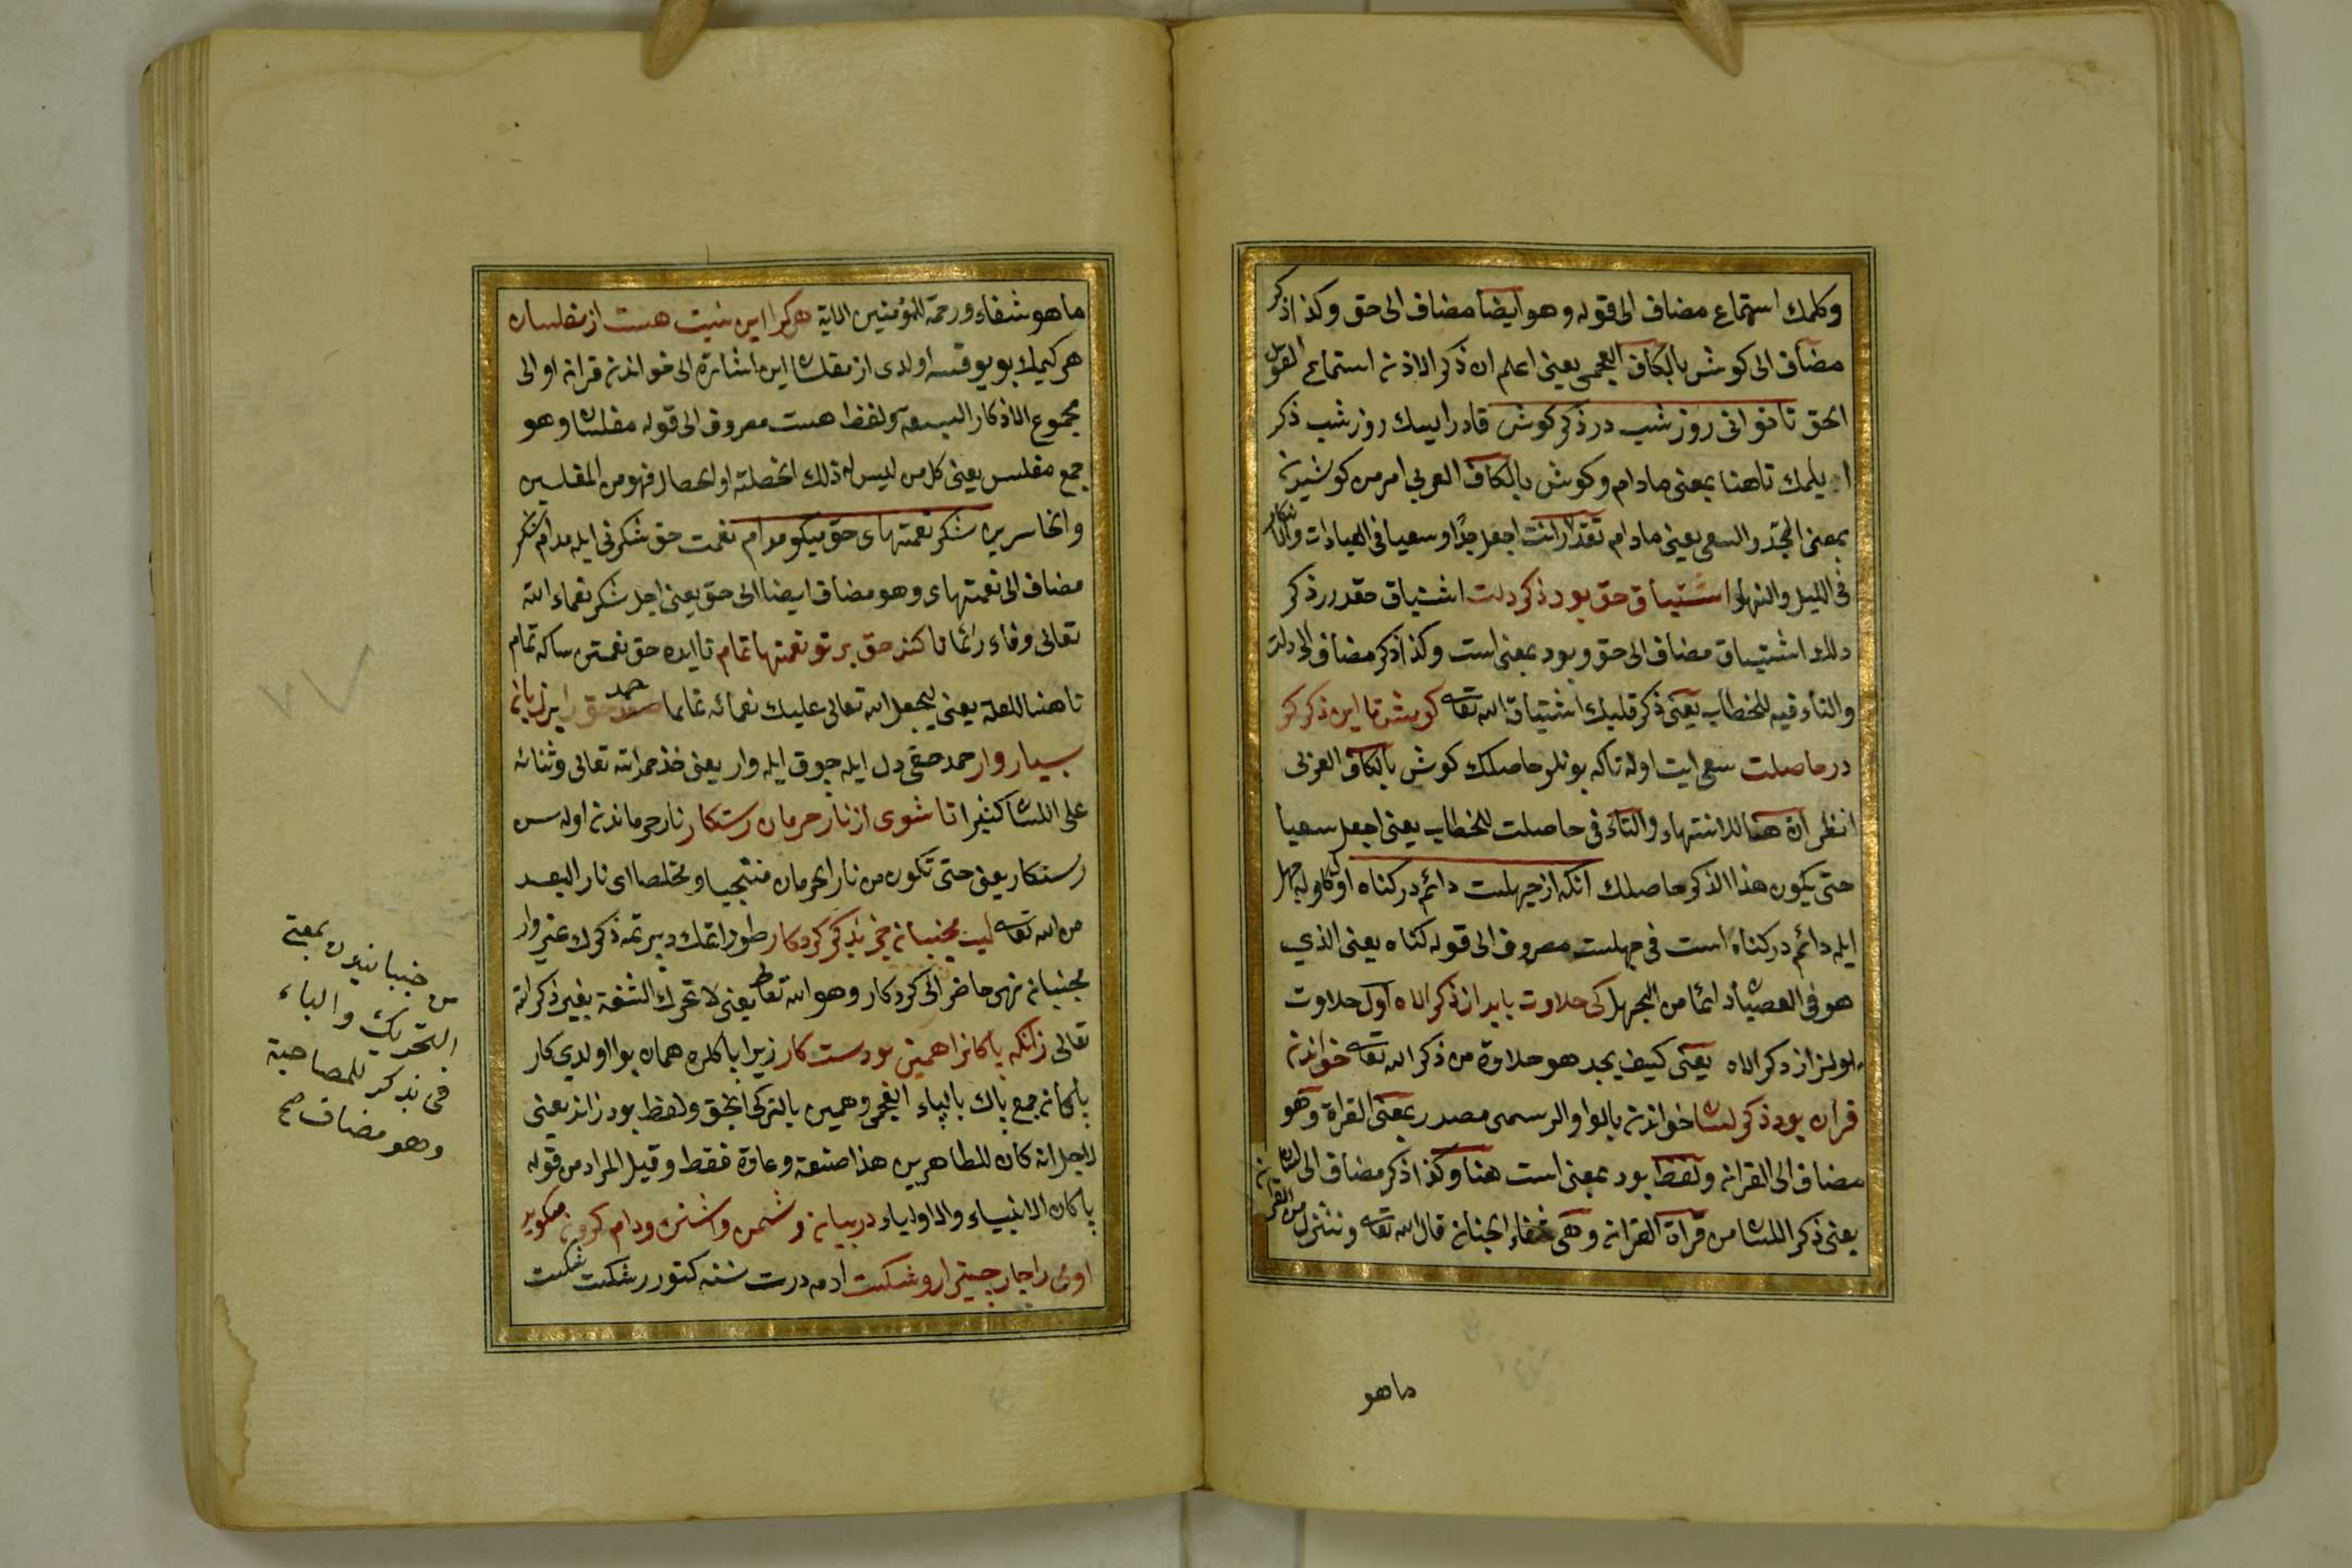 وكلمك استماع مضاف الى قوله وهو ايضا مضاف الى حق وكذا ذكر
مضاف الى كوش بالكاف العجمى يعنى اعلم ان ذكر الاذن استماع القول
الحق تا توانى روز شب در ذكر كوش قادر ايسك روز شب ذكر
ايلمك تا هنا بمعنى مادام وكوش بالكاف العربى امر من كوشيدن
بمعنى الجد والسعى يعنى مادام تقدر انت اجعل جدا وسعيا فى العبادات والاذكار
فى الليل والنهار اشتياق حق بود ذكر دلت اشتياق حقدر ذكر
دلك اشتياق مضاف الى حق وبود بمعنى است وكذا ذكر مضاف الى دلت
والتاء فيه للخطاب يعنى ذكر قلبك اشتياق الله تعالى كوش تا اين ذكر كو
در حاصلت سعى ايت اوله تاكه بونلر حاصلك كوش بالكاف العربى
انظر ان هنا للانتهاء والتاء فى حاصلت للخطاب يعنى اجعل سعيا
حتى يكون هذا الذكر حاصلك آنكه از جهلست دائم در كناه اول كاوله جهل
ايله دائم در كناه است فى جهلست مصروف الى قوله كناه يعنى الذي
هو فى العصيان دائما من الجهل كى حلاوت يابد از ذكر اله اول حلاوت
بولنر از ذكر اله يعنى كيف يجد هو حلاوة من ذكر الله تعالى خواندن
قرآن بود ذكر لسان خواندن بالواو الرسمى مصدر بمعنى القراءة وهو
مضاف الى القران ولفظ بود بمعنى است هنا وكذا ذكر مضاف الى لسان
يعنى ذكر اللسان من قرأة القران وهى شفاء الجنان قال الله تعالى وننزل من القرآن
ماهو
ما هو شفاء ورحمة للمؤمنين الاية هر كرا اين نيت هست از مفلسان
هر كيمك بو يوقسه اولدى از مفلسان اين اشارة الى خواندن قران او الى
مجموع الاذكار السبعة ولفظ هست مصروف الى قوله مفلسان وهو
جمع مفلس يعنى كل من ليس له ذلك الخصلة او الخصال فهو من المفلسين
والخاسرين شكر نعمتهاى حق ميكو مدام نعمت حق شكرنى ايله مدام شكر
مضاف الى نعمتهاى وهو مضاف ايضا الى حق يعنى اجل شكر نعماء الله
تعالى وفاء دائما تا كند حق بر تو نعمتها تمام تا ايده حق نعمتن ساكه تمام
تا هنا للعلة يعنى ليجعل الله تعالى عليك نعمائه تماما حمد حق را بر زبان
بسيار وار حمد حقى دل ايله چوق ايله وار يعنى خذ حمد الله تعالى وثنائه
على اللسان كثيرا تا شوى از نار حرمان رستكار نار حرماندن اوله سن
رستكار يعنى حتى تكون من نار الحرمان منتجيا ومخلصا اى نار البعد
من الله تعالى لب مجنبان جز بذكر كردكار طوداغك دپرتمه ذكرك غير وار
مجنبان نهى حاضر الى كردكار وهو الله تعالى يعنى لا تحرك الشفة بغير ذكر الله
تعالى زانكه پاكانرا همين بودست كار زيرا پاكلره همان بوا اولدي كار
پاكان جمع پاك بالپاء العجمى وهمين بالتركى انجق ولفظ بود زائد يعنى
لاجل انه كان للطاهرين هذا صنعة وعادة فقط وقيل المراد من قوله
پاكان الانبياء والاولياء در بيان
اومى را چار چيز آرد شكست آدمه درت سنه كتورر شكست شكست
جنبانيدن بمعنى
من
التحريك والباء
فى بذكر للمصاحبة
وهو مضاف صح